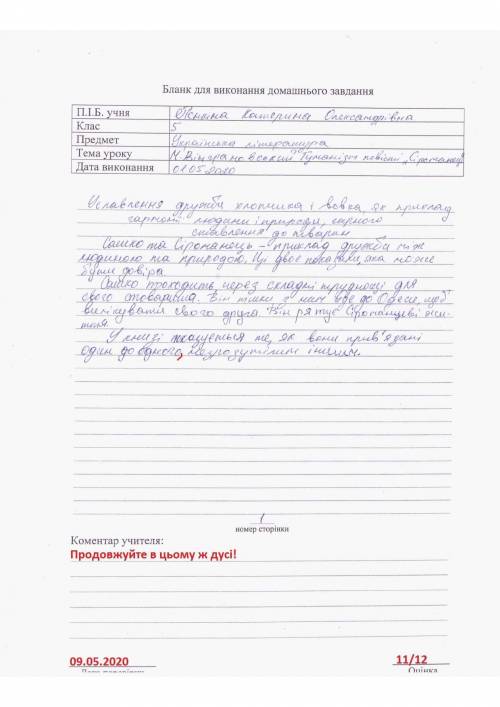 Бланк для виконання домашнього завдання
П.І.Б. учня Катерина Олександрівна
Клас 5
Предмет Українська література
Тема уроку М. Вінграновський "Гуманізм повісті "Сіроманець"
Дата виконання 01.05.2020
Уславлення дружби хлопчика і вовка як приклад
гармонії людини і природи,
ставлення до тварин
Сашко та Сіроманець – приклад дружби між
людиною та природою. Ці двоє показали, яка може
бути довіра.
Сашко проходить через складні труднощі для
свого товариша. Він тільки з ним йде до Одеси, щоб
вилікувати свого друга. Він рятує Сіроманцеві жит-
тя.
У книзі те, як вони прив'язані
один до одного,
1
номер сторінки
Коментар учителя:
Продовжуйте в цьому ж дусі!
09.05.2020 11/12
Оцінка